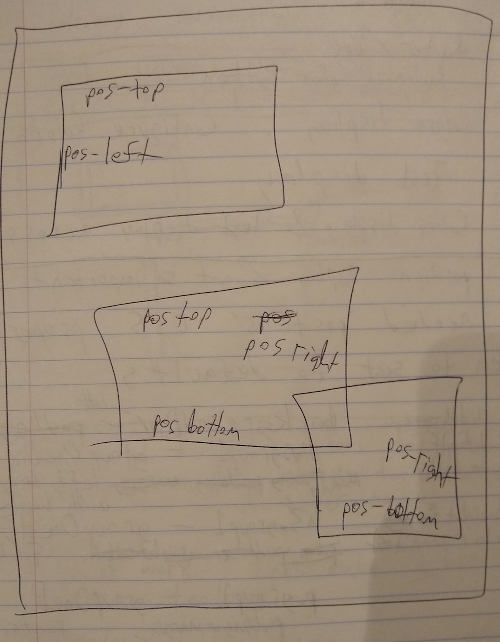 pos-top
pos-left
pos top pos
pos right
pos bottom
pos right
pos-bottom